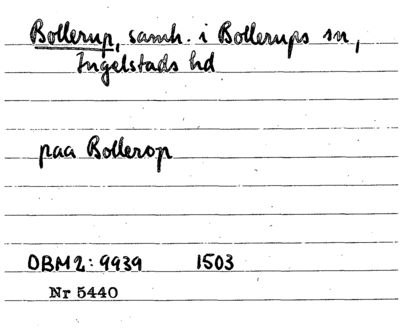 Bollerup, samh. i Bollerups sn,
Ingelstads hd
paa Bollerop
OBM2: 9939 1503
Nr 5440